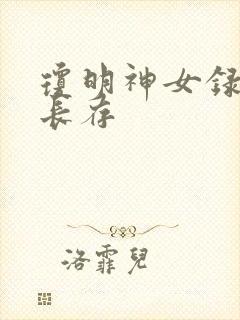 瓊明神女録
長存
洛霏兒